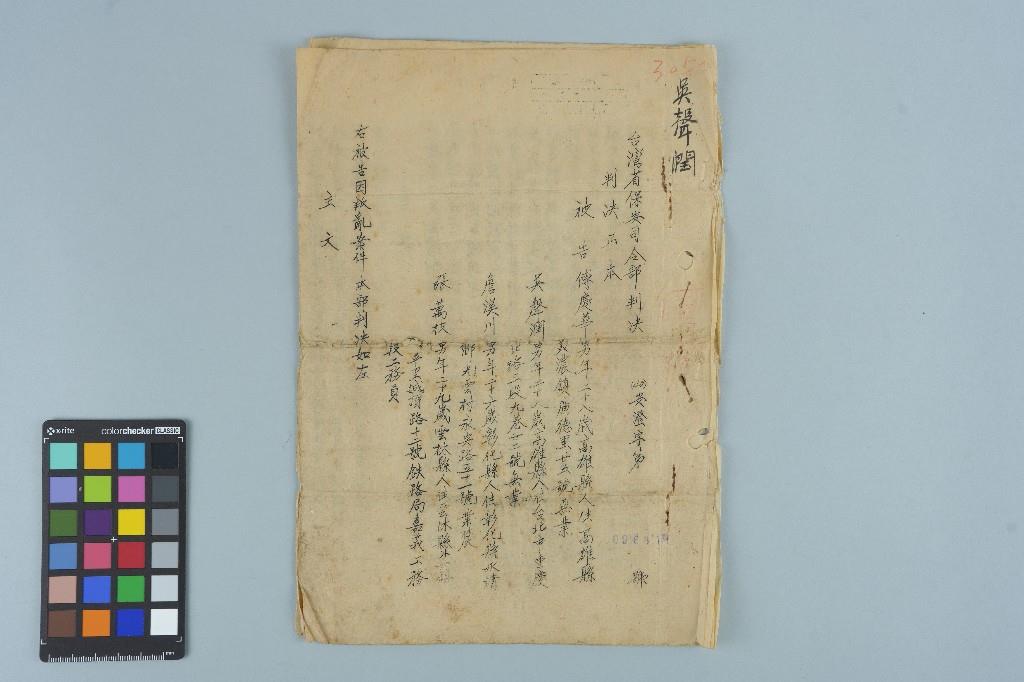 吳聲潤
台灣省保安司令部判決
安澄字第
號
判決正本
被告 傅慶華 男年二十八歲高雄縣人住高雄縣
美濃鎮
里廿五號無業
吳聲潤 男年二十八歲高雄縣人住台北市重慶
北路三段九巷廿二號無業
詹溪川 男年二十六歲彰化縣人住彰化縣永靖
鄉光雲村永安路五十一號業農
張萬枝 男年二十九歲雲林縣人住雲林縣斗六
平里城頂路十二號鉄路局嘉義工務
段工務員
右被告因叛亂案件本部判決如左
主文
x-rite
colorchecker CLASSIC
mm